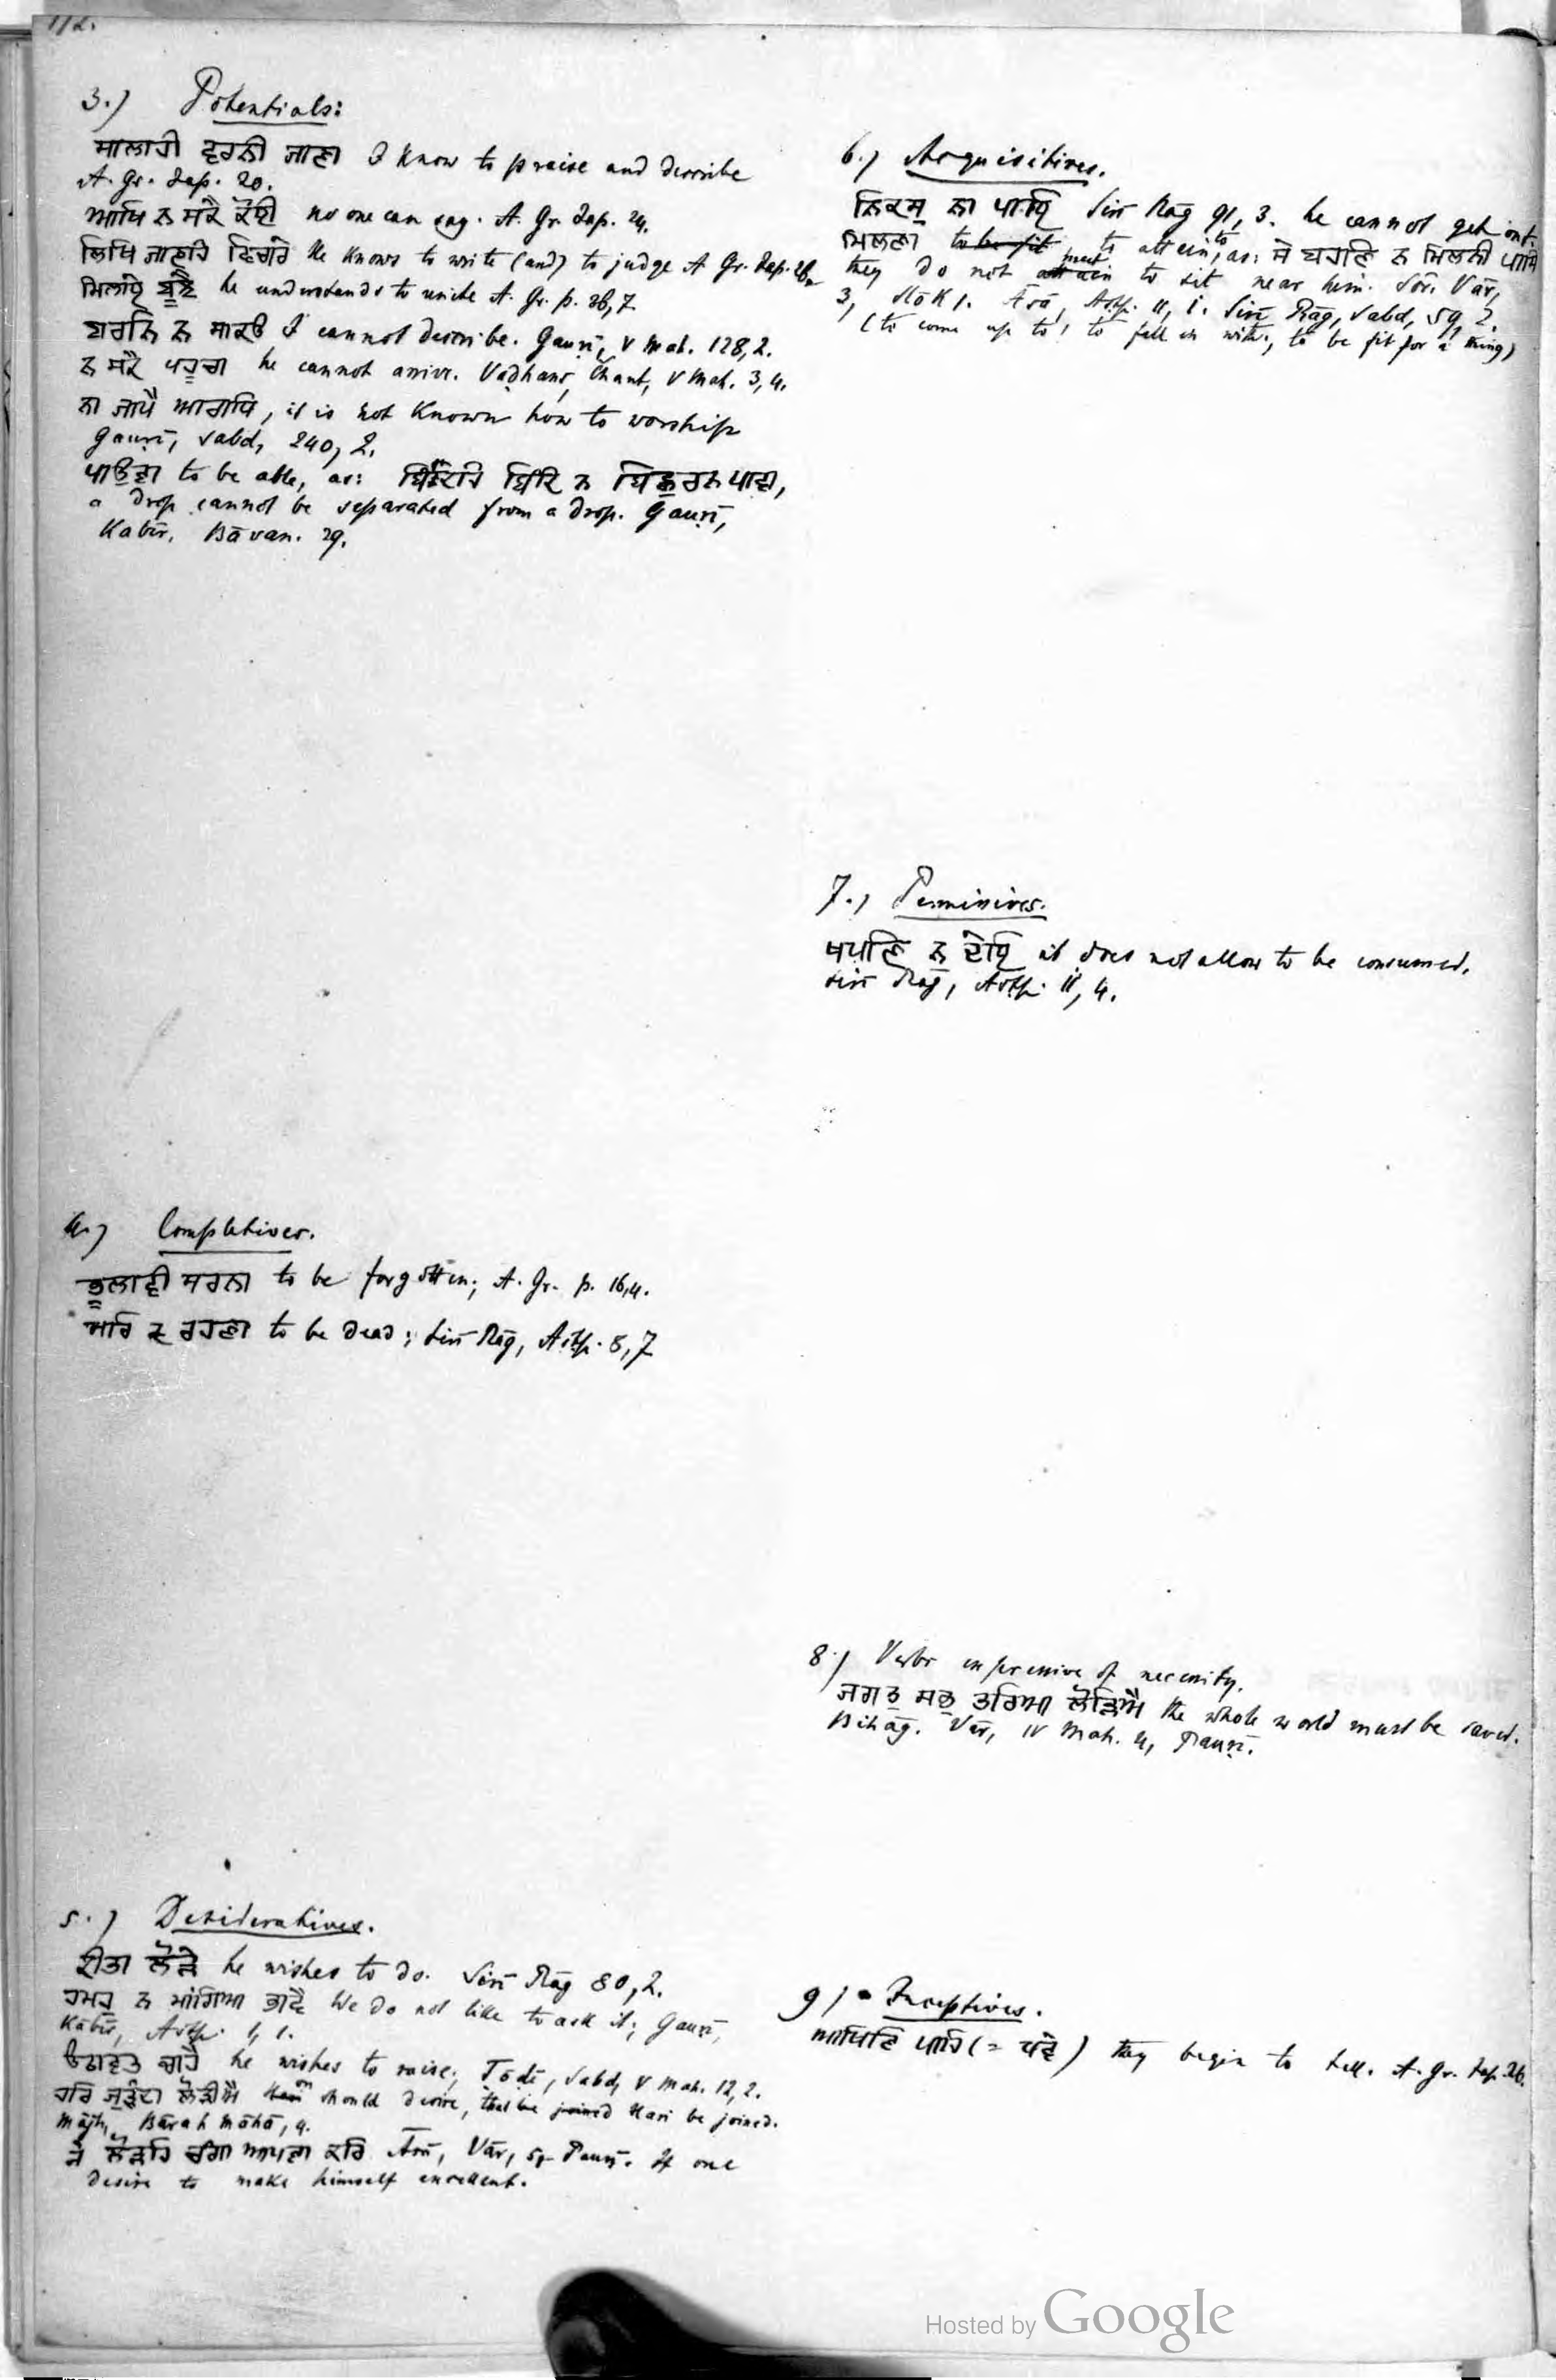 112.
3.) Potentials:
ਸਾਲਾਹੀ ਵਰਨੀ ਜਾਣਾ I know to praise and describe
A. Gr. Jap. 20.
ਆਖਿ ਨ ਸਕੈ ਕੋਈ no one can say. A. Gr. Jap. 24.
ਲਿਖਿ ਜਾਣਹਿ he knows to write (and) to judge A Gr. Jap.
ਬੂਝੈ he understands to unite A. Gr. p. 26,7
ਬਰਨਿ ਨ ਸਾਕਉ I cannot describe. Gauṛī, V Mah. 128,2.
ਨ ਸਕੈ ਪਹੂਚਾ he cannot arrive. Vaḍhans, Chant, V Mah. 3,4.
ਨਾ ਜਾਪੈ ਆਰਾਧਿ, it is not known how to worship
Gauṛī, Sabd, 240, 2.
ਪਾਉਣਾ to be able, as: ਬਿੰਦਹਿ ਬਿੰਦਿ ਨ ਬਿਛੁਰਨ ਪਾਵਾ,
a drop cannot be separated from a drop. Gauṛī,
Kabīr. Bāvan. 29.
4.) Completives.
ਭੂਲਾਵੀ to be forgotten; A. Gr. p. 16,4.
ਰਹਣਾ to be dead; Sirī Rāg, Aṣṭp. 8,7
5.) Desideratives.
ਕੀਤਾ ਲੋੜੇ he wishes to do. Sirī Rāg 80,2.
ਹਮਹੁ ਨ ਮਾਂਗਿਆ ਭਾਵੈ We do not like to ask it; Gauṛī,
Kabīr, Aṣṭp. 1,1.
ਚਾਹੈ he wishes to raise; Ṭoḍī, Sabd, V Mah. 12,2.
ਹਰਿ ਜੁੜੰਦਾ ਲੋੜੀਐ on should desire, that Hari be joined.
Mājh, Bārah Māhā, 4.
ਜੇ ਲੋੜਹਿ ਚੰਗਾ ਆਪਣਾ ਕਰਿ Āsā, Vār, 5, Pauṛī. If one
desire to make himself excellent.
6.) Acquisitives.
ਨਿਕਸੁ ਨਾ ਪਾਇ Sirī Rāg 91,3. he cannot get out.
ਮਿਲਣਾ to be fit to attain to, as: ਸੇ ਬਹਣਿ ਨ ਮਿਲਨੀ ਪਾਸਿ
they do not attain meet to sit near him. Sor. Vār,
3, Slōk 1. Āsā, Aṣṭp. 11, 1. Sirī Rāg, Sabd, 59, 2.
(to come up to, to fall in with, to be fit for a thing)
7.) Permissives.
ਖਪਣਿ ਨ ਦੇਇ it does not allow to be consumed.
Sirī Rāg, Aṣṭp. 11, 4.
8.) Verbs expressive of necessity.
ਜਗਤੁ ਸਭੁ ਤਰਿਆ ਲੋੜਿਐ the whole world must be saved.
Bihāg. Vār, IV Mah. 4, Pauṛī.
9) Inceptives.
ਆਖਣਿ ਪਾਹਿ (= ਪਵੇ) they begin to tell. A. Gr. Jap. 26.
Hosted by Google